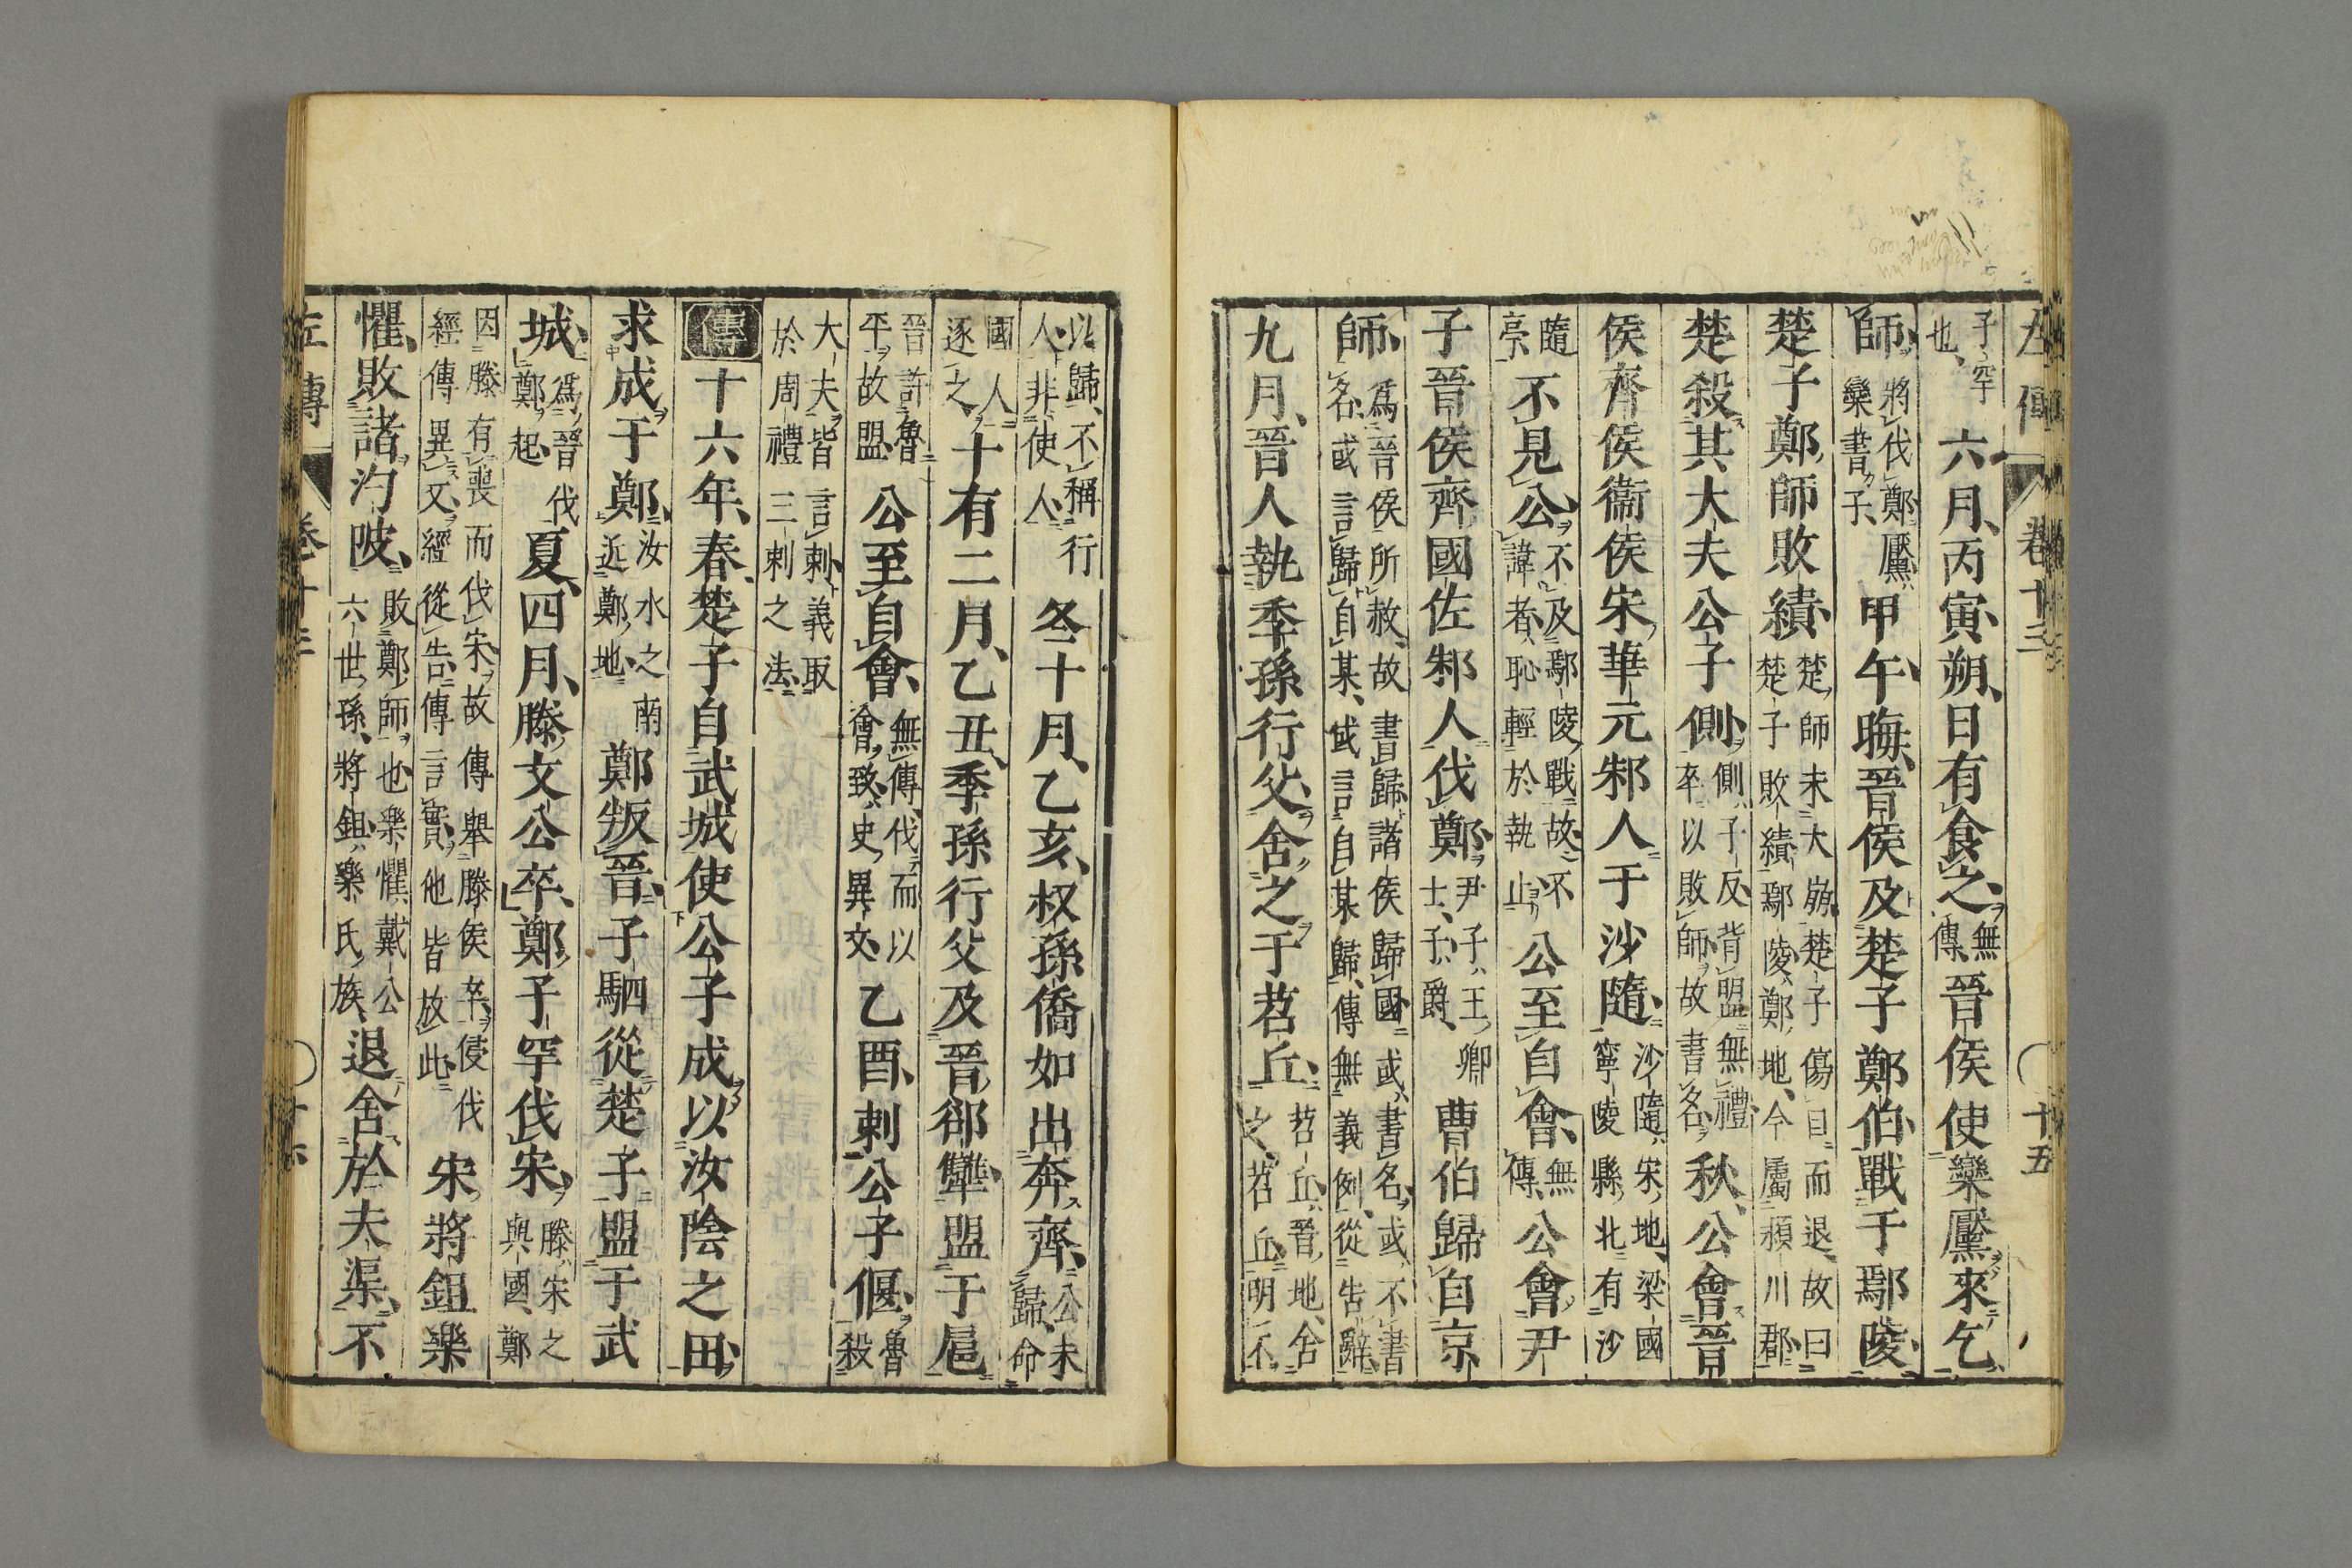 左傳 卷十三 十五
子罕
也 六月丙寅朔日有食之無
傳晉侯使欒黶來乞
師將伐鄭黶
欒書子甲午晦晉侯及楚子鄭伯戰于鄢陵
楚子鄭師敗績楚師未大崩楚子傷目而退故曰
楚子敗績鄢陵鄭地今屬潁川郡
楚殺其大夫公子側側子反背盟無禮
卒以敗師故書名秋公會晉
侯齊侯衞侯宋華元邾人于沙隨沙隨宋地梁國
寧陵縣北有沙
隨
亭不見公不及鄢陵戰故不
諱者恥輕於執止公至自會無
傳公會尹
子晉侯齊國佐邾人伐鄭尹子王卿
士子爵曹伯歸自京
師爲晉侯所赦故書歸諸侯歸國或書名或不書
名或言歸自某或言自某歸傳無義例從告辭
九月晉人執季孫行父舍之于苕丘苕丘晉地舍
之苕丘明不
以歸不稱行
人非使人冬十月乙亥叔孫僑如出奔齊公未
歸命
國人
逐之十有二月乙丑季孫行父及晉郤犫盟于扈
晉許魯
平故盟公至自會無傳伐而以
會致史異文乙酉刺公子偃魯
殺
大夫皆言刺義取
於周禮三刺之法
傳十六年春楚子自武城使公子成以汝陰之田
求成于鄭汝水之南
近鄭地鄭叛晉子駟從楚子盟于武
城爲晉伐
鄭起夏四月滕文公卒鄭子罕伐宋滕宋之
與國鄭
因滕有喪而伐宋故傳舉滕侯卒侵伐
經傳異文經從告傳言實他皆放此宋將鉏樂
懼敗諸汋陂敗鄭師也樂懼戴公
六世孫將鉏樂氏族退舍於夫渠不
左傳 卷十三 十六